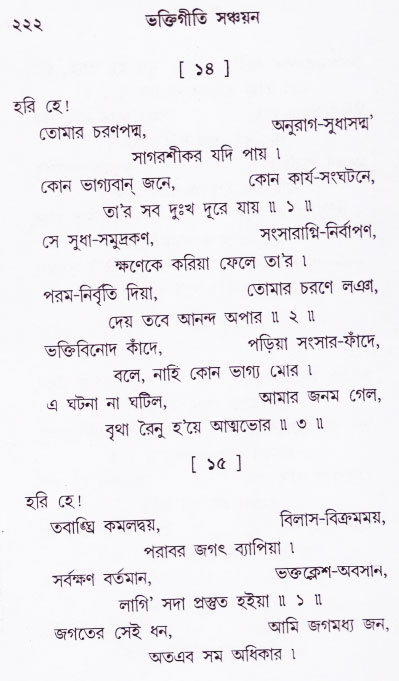 ২২২ ভক্তিগীতি সঞ্চয়ন
[ ১৪ ]
হরি হে !
তোমার চরণপদ্ম, অনুরাগ-সুধাসদ্ম’
সাগরশীকর যদি পায় ।
কোন ভাগ্যবান্ জনে, কোন কার্য-সংঘটনে,
তা’র সব দুঃখ দূরে যায় ॥ ১ ॥
সে সুধা-সমুদ্রকণ, সংসারাগ্নি-নির্বাপণ,
ক্ষণেকে করিয়া ফেলে তা’র ।
পরম-নির্বৃতি দিয়া, তোমার চরণে লঞা,
দেয় তবে আনন্দ অপার ॥ ২ ॥
ভক্তিবিনোদ কাঁদে, পড়িয়া সংসার-ফাঁদে,
বলে, নাহি কোন ভাগ্য মোর ।
এ ঘটনা না ঘটিল, আমার জনম গেল,
বৃথা রৈনু হ’য়ে আত্মভোর ॥ ৩ ॥
[ ১৫ ]
হরি হে !
তবাঙ্ঘ্রি কমলদ্বয়, বিলাস-বিক্রমময়,
পরাবর জগৎ ব্যাপিয়া ।
সর্বক্ষণ বর্তমান, ভক্তক্লেশ-অবসান,
লাগি’ সদা প্রস্তুত হইয়া ॥ ১ ॥
জগতের সেই ধন, আমি জগমধ্য জন,
অতএব সম অধিকার ।